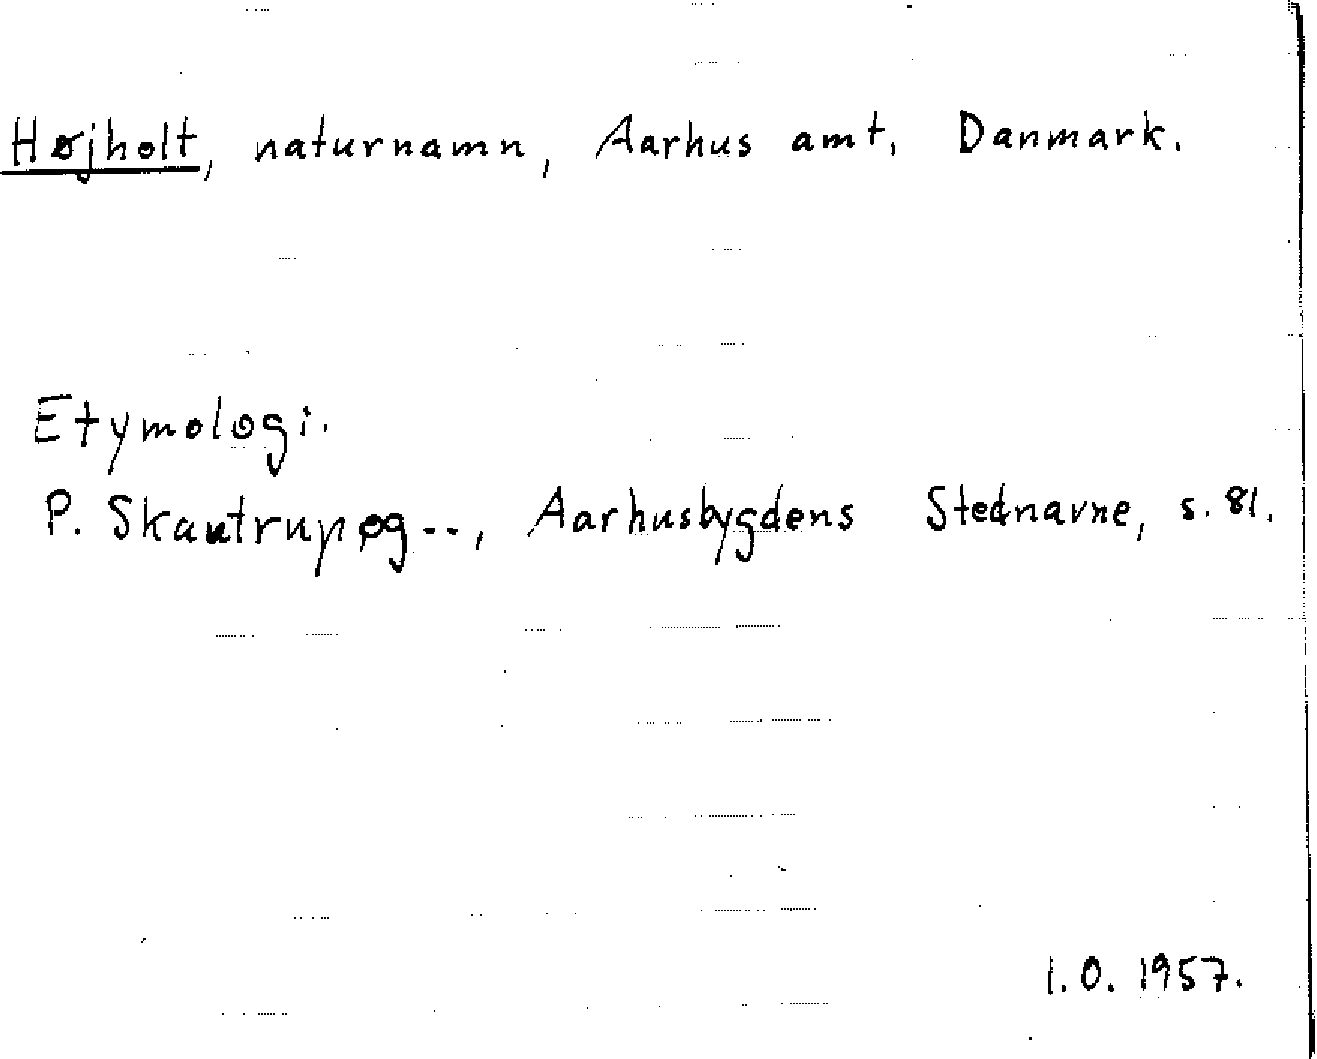 Højholt, naturnamn, Aarhus amt, Danmark.
Etymologi.
P. Skautrup og --, Aarhusbygdens Stednavne, s. 81.
I.O. 1957.